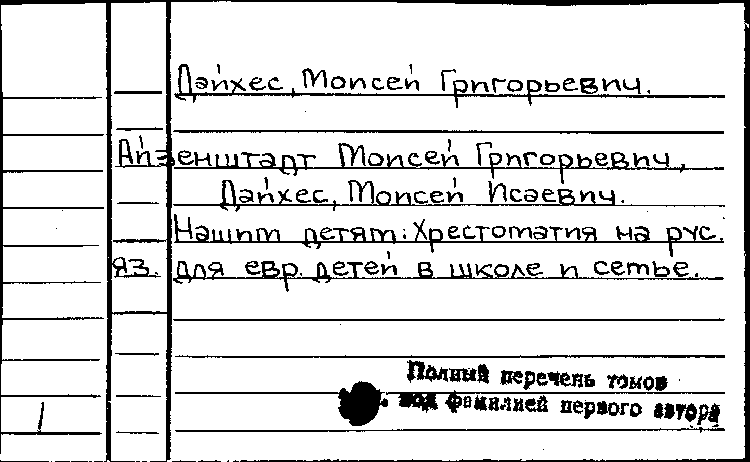 Дайхес, Моисей Григорьевич.
Айзенштадт Моисей Григорьевич,
Дайхес, Моисей Исаевич.
Нашим детям: Хрестоматия на рус.
яз. для евр. детей в школе и семье.
Полный перечень томов
под фамилией первого автора
1